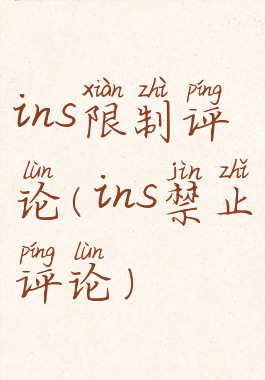 xiàn zhì píng
ins限制评
lùn jìn zhǐ
论(ins禁止
píng lùn
评论)